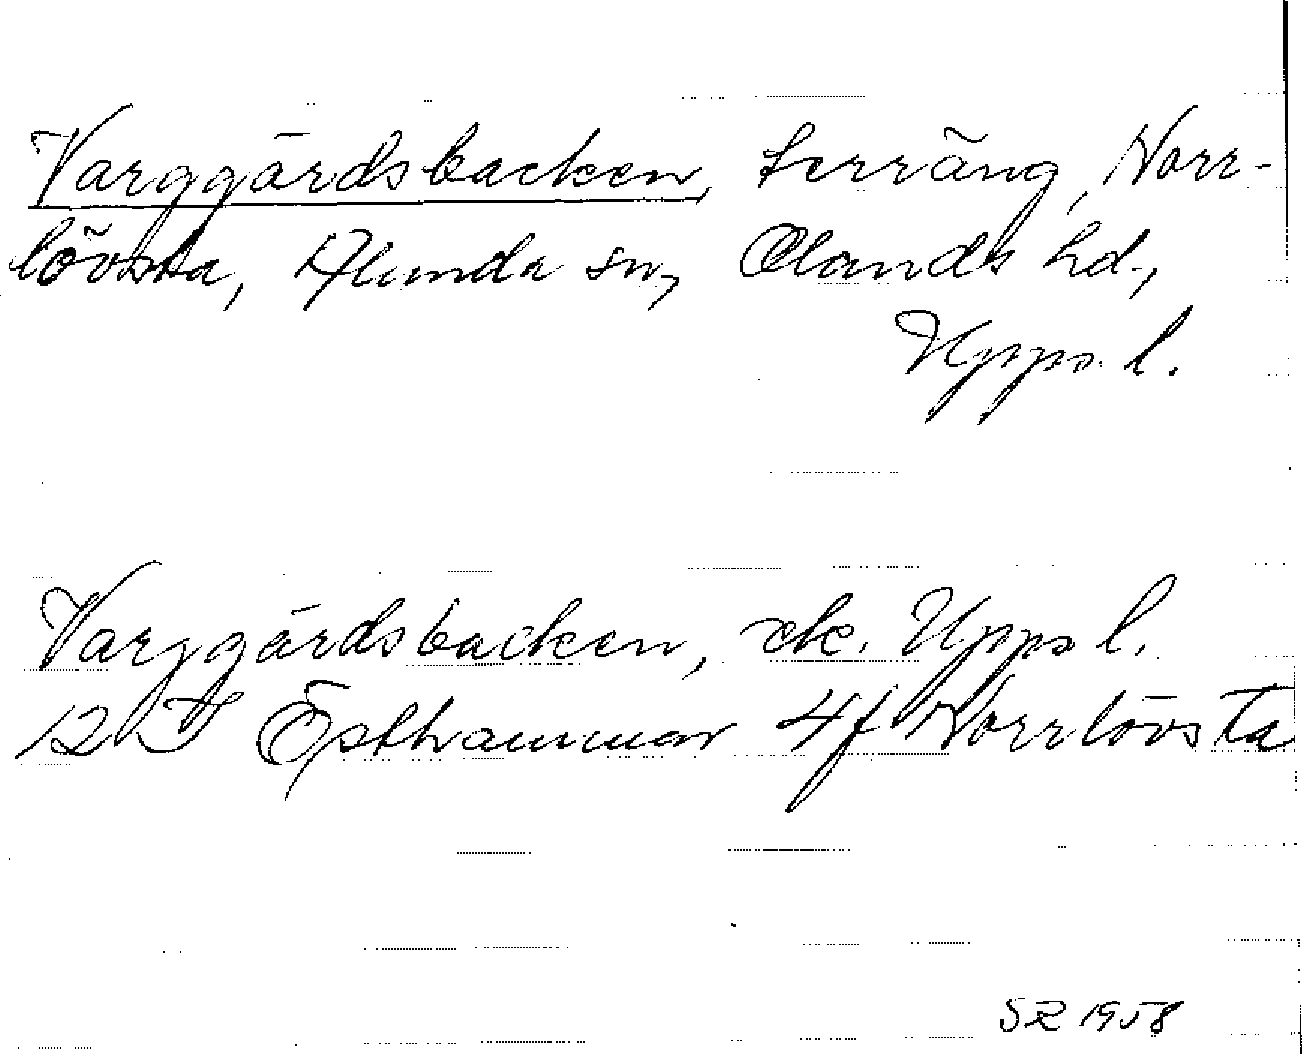 Varggårdsbacken, terräng, Norr-
lövsta, Alunda sn, Olands hd.,
Upps. l.
Varggårdsbacken, ek. Upps l.
12I Östhammar 4f Norrlövsta
SR 1958